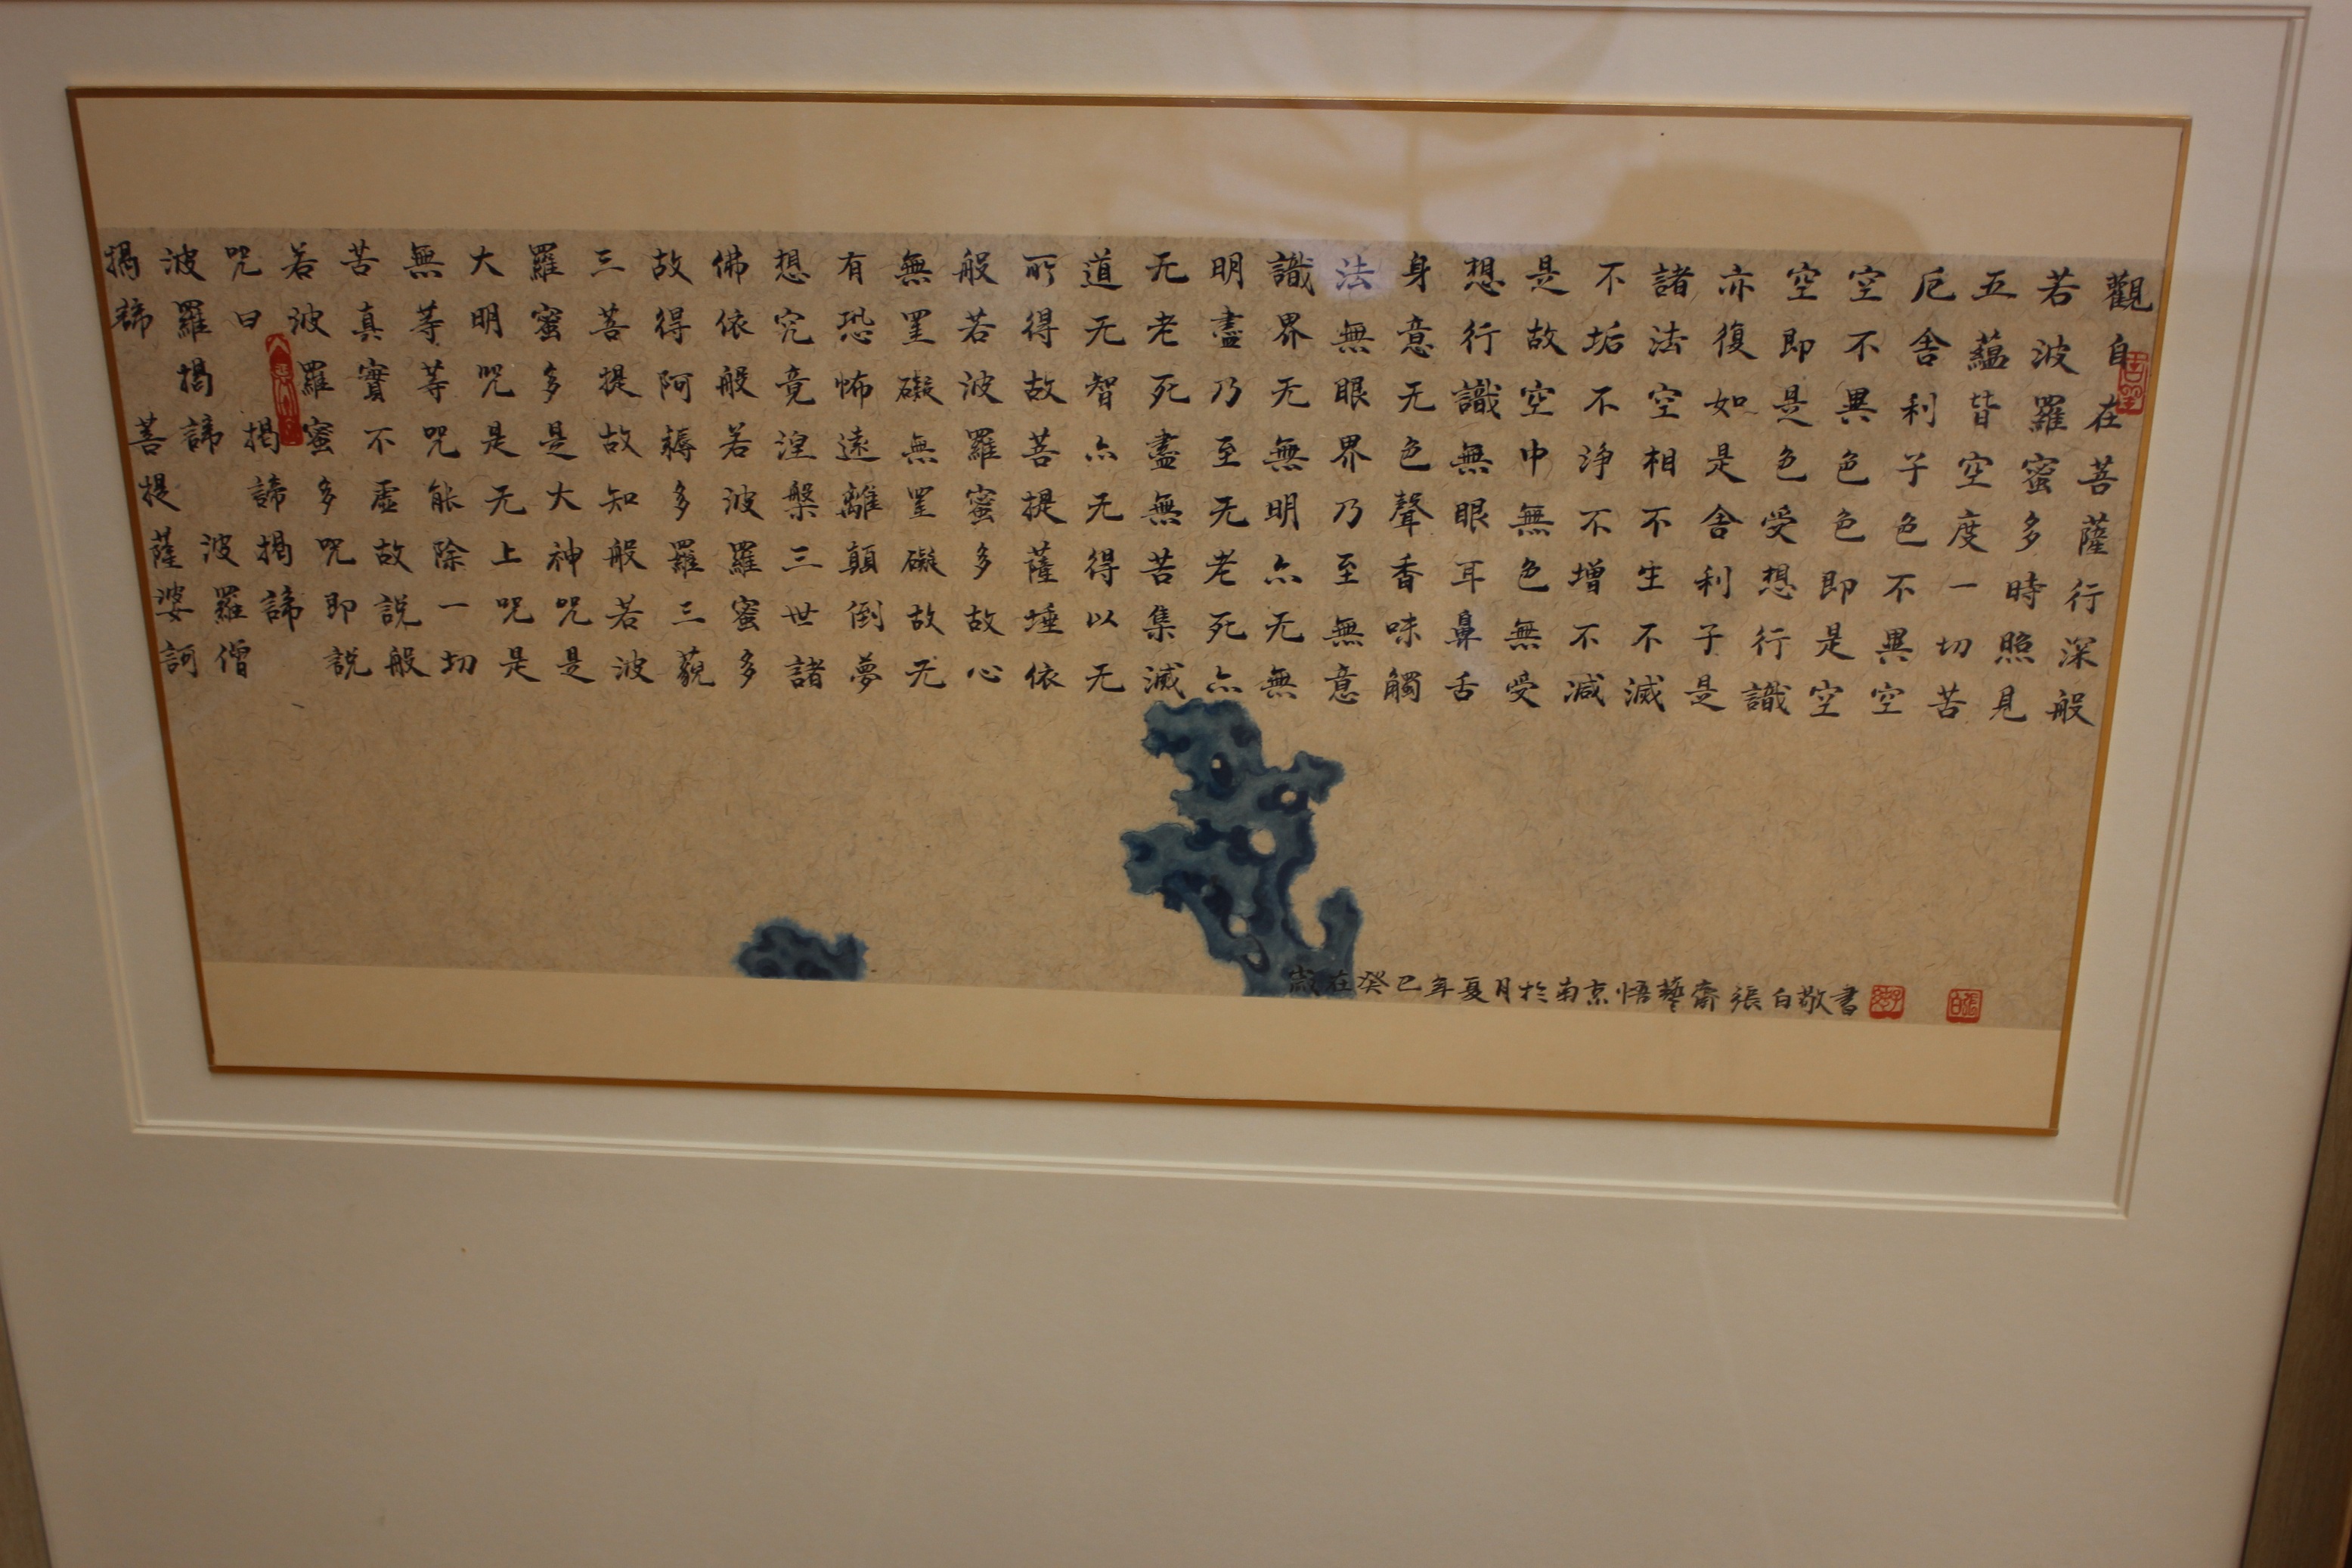 觀自在菩薩行深般
若波羅蜜多時照見
五蘊皆空度一切苦
厄舍利子色不異空
空不異色色即是空
空即是色受想行識
亦復如是舍利子是
諸法空相不生不滅
不垢不淨不增不減
是故空中無色無受
想行識無眼耳鼻舌
身意无色聲香味觸
法無眼界乃至無意
識界无無明亦无無
明盡乃至无老死亦
无老死盡無苦集滅
道无智亦无得以无
所得故菩提薩埵依
般若波羅蜜多故心
無罣礙無罣礙故无
有恐怖遠離顛倒夢
想究竟涅槃三世諸
佛依般若波羅蜜多
故得阿耨多羅三藐
三菩提故知般若波
羅蜜多是大神咒是
大明咒是无上咒是
無等等咒能除一切
苦真實不虛故說般
若波羅蜜多咒即說
咒曰 揭諦揭諦
波羅揭諦 波羅僧
揭諦 菩提薩婆訶
歲在癸巳年夏月於南京悟藝齋 張白敬書
張白